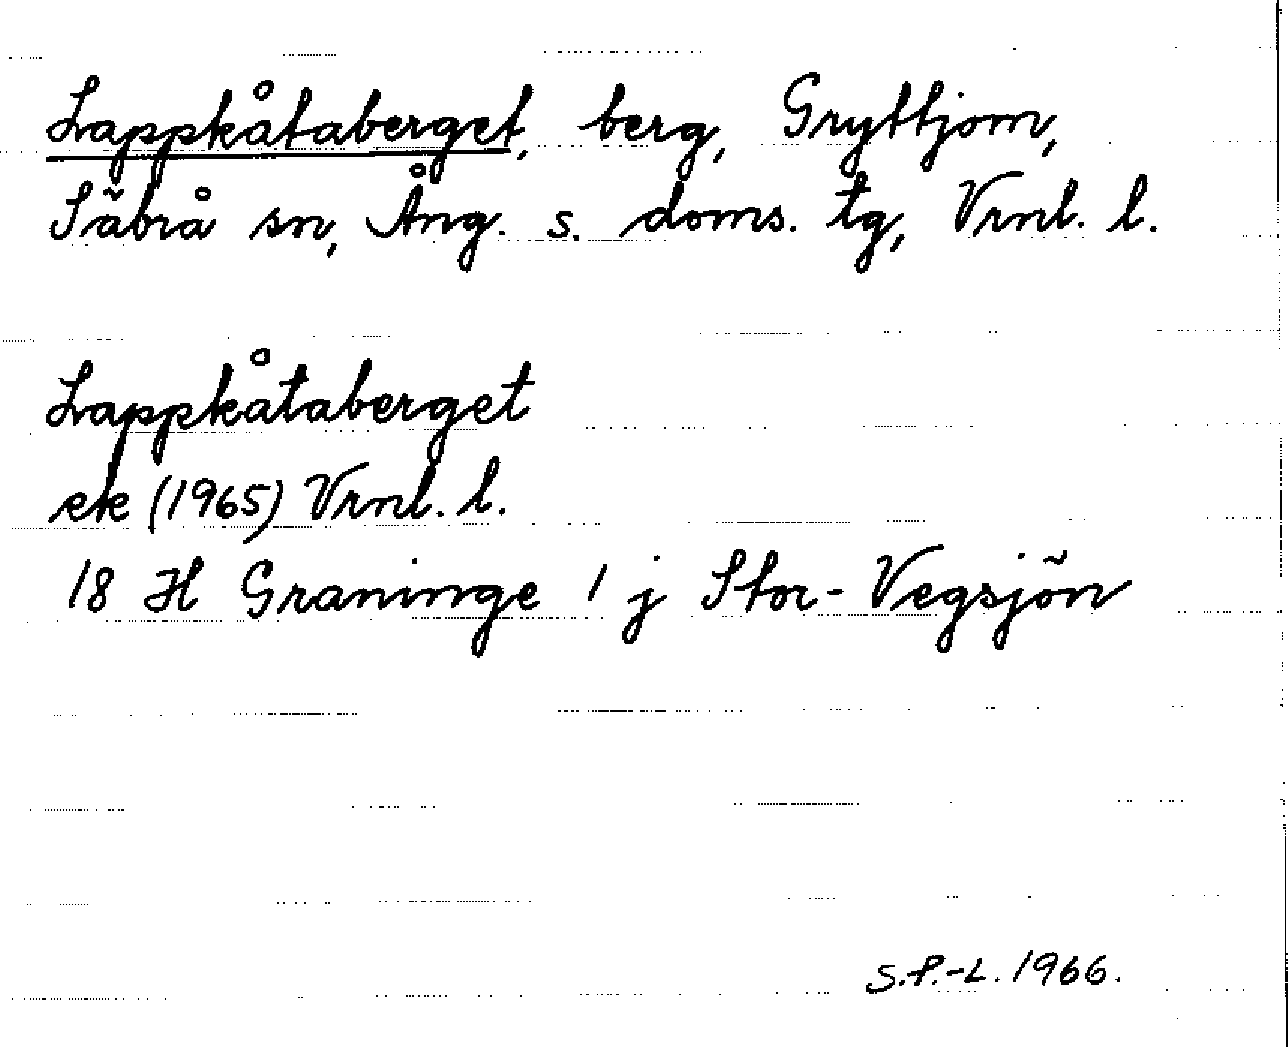 Lappkåtaberget, berg, Gryttjom,
Säbrå sn, Ång. s. doms. tg, Vrnl. l.
Lappkåtaberget
ek (1965) Vrnl. l.
18 H Graninge 1 j Stor-Vegsjön
S.P.-L. 1966.